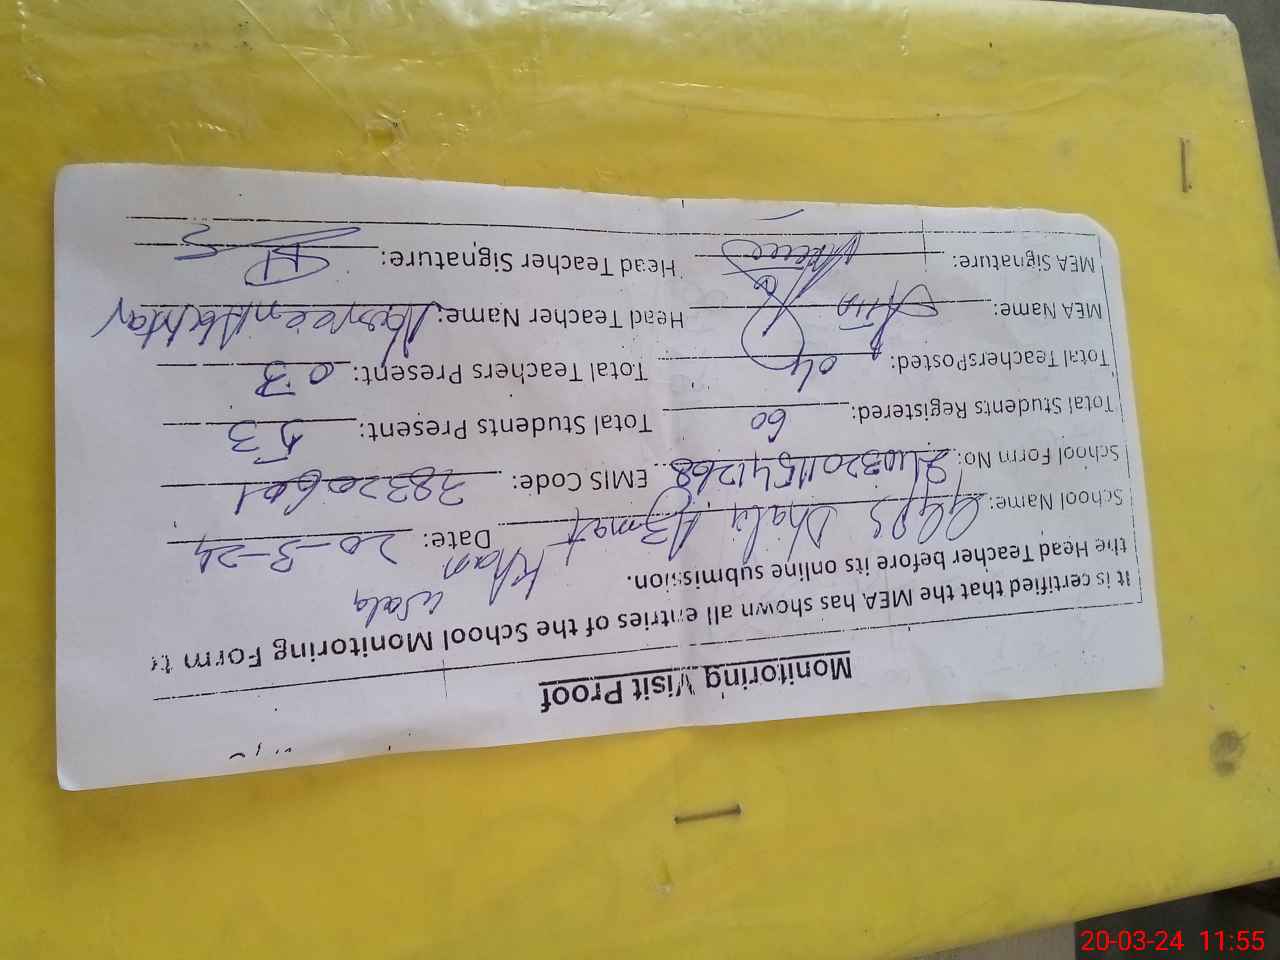 Monitoring Visit Proof
It is certified that the MEA has shown all entries of the School Monitoring Form to
the Head Teacher before its online submission.
School Name: GGPS Dhala Azmat Khan Wala Date: 20-3-24
School Form No: EMIS Code:
Total Students Registered: 60 Total Students Present: 53
Total TeachersPosted: 04 Total Teachers Present: 03
MEA Name: Head Teacher Name: Nasreen Akhtar
MEA Signature: Head Teacher Signature:
20-03-24 11:55